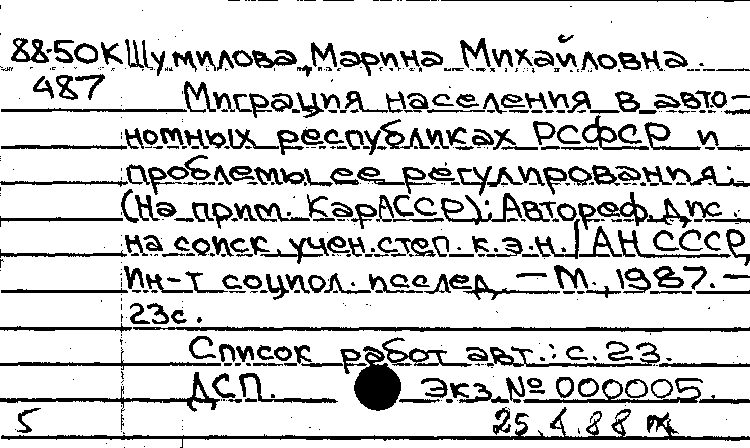 88-50К Шумилова, Марина Михайловна.
487 Миграция населения в авто-
номных республиках РСФСР и
проблемы ее регулирования:
(На прим. КарАССР): Автореф. дис.
на соиск. учен. степ. к.э.н. / АН СССР,
Ин-т социол. исслед. — М., 1987. —
23с.
Список работ авт.: с. 23.
ДСП. Экз. № 000005.
5 25.4.88